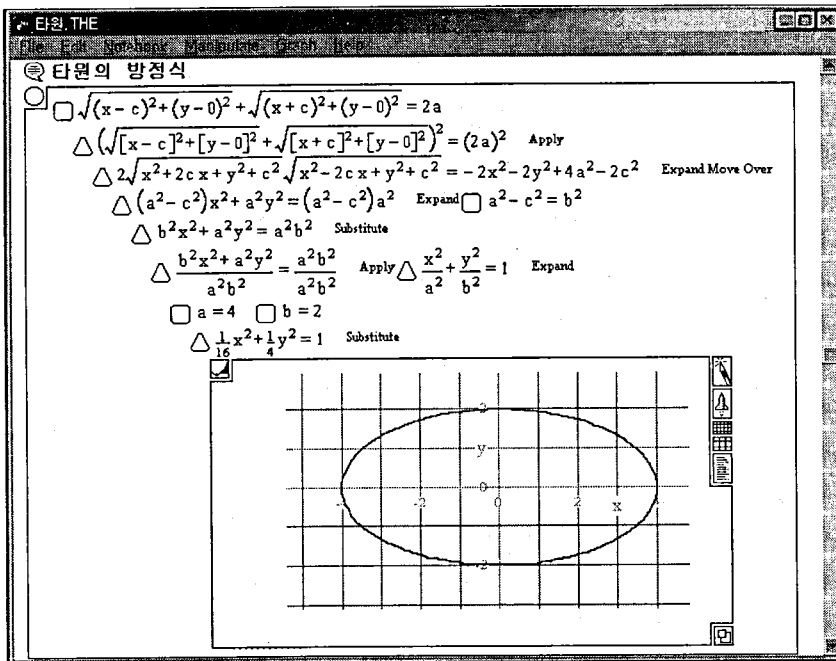 타원.THE
File Edit Notebook Manipulate Graph Help
타원의 방정식
√((x − c)²+(y − 0)²) + √((x + c)²+(y − 0)²) = 2a
(√([x − c]²+[y − 0]²) + √([x + c]²+[y − 0]²))² = (2a)² Apply
2√(x²+2c x + y²+ c²) √(x²− 2c x + y²+ c²) = − 2x²− 2y²+ 4a²− 2c² Expand Move Over
(a²− c²)x²+ a²y² = (a²− c²)a² Expand a²− c² = b²
b²x²+ a²y² = a²b² Substitute
(b²x²+ a²y²)/(a²b²) = (a²b²)/(a²b²) Apply x²/a² + y²/b² = 1 Expand
a = 4 b = 2
1/16 x²+ 1/4 y² = 1 Substitute
2
y
0
-2 0 2 x
-2